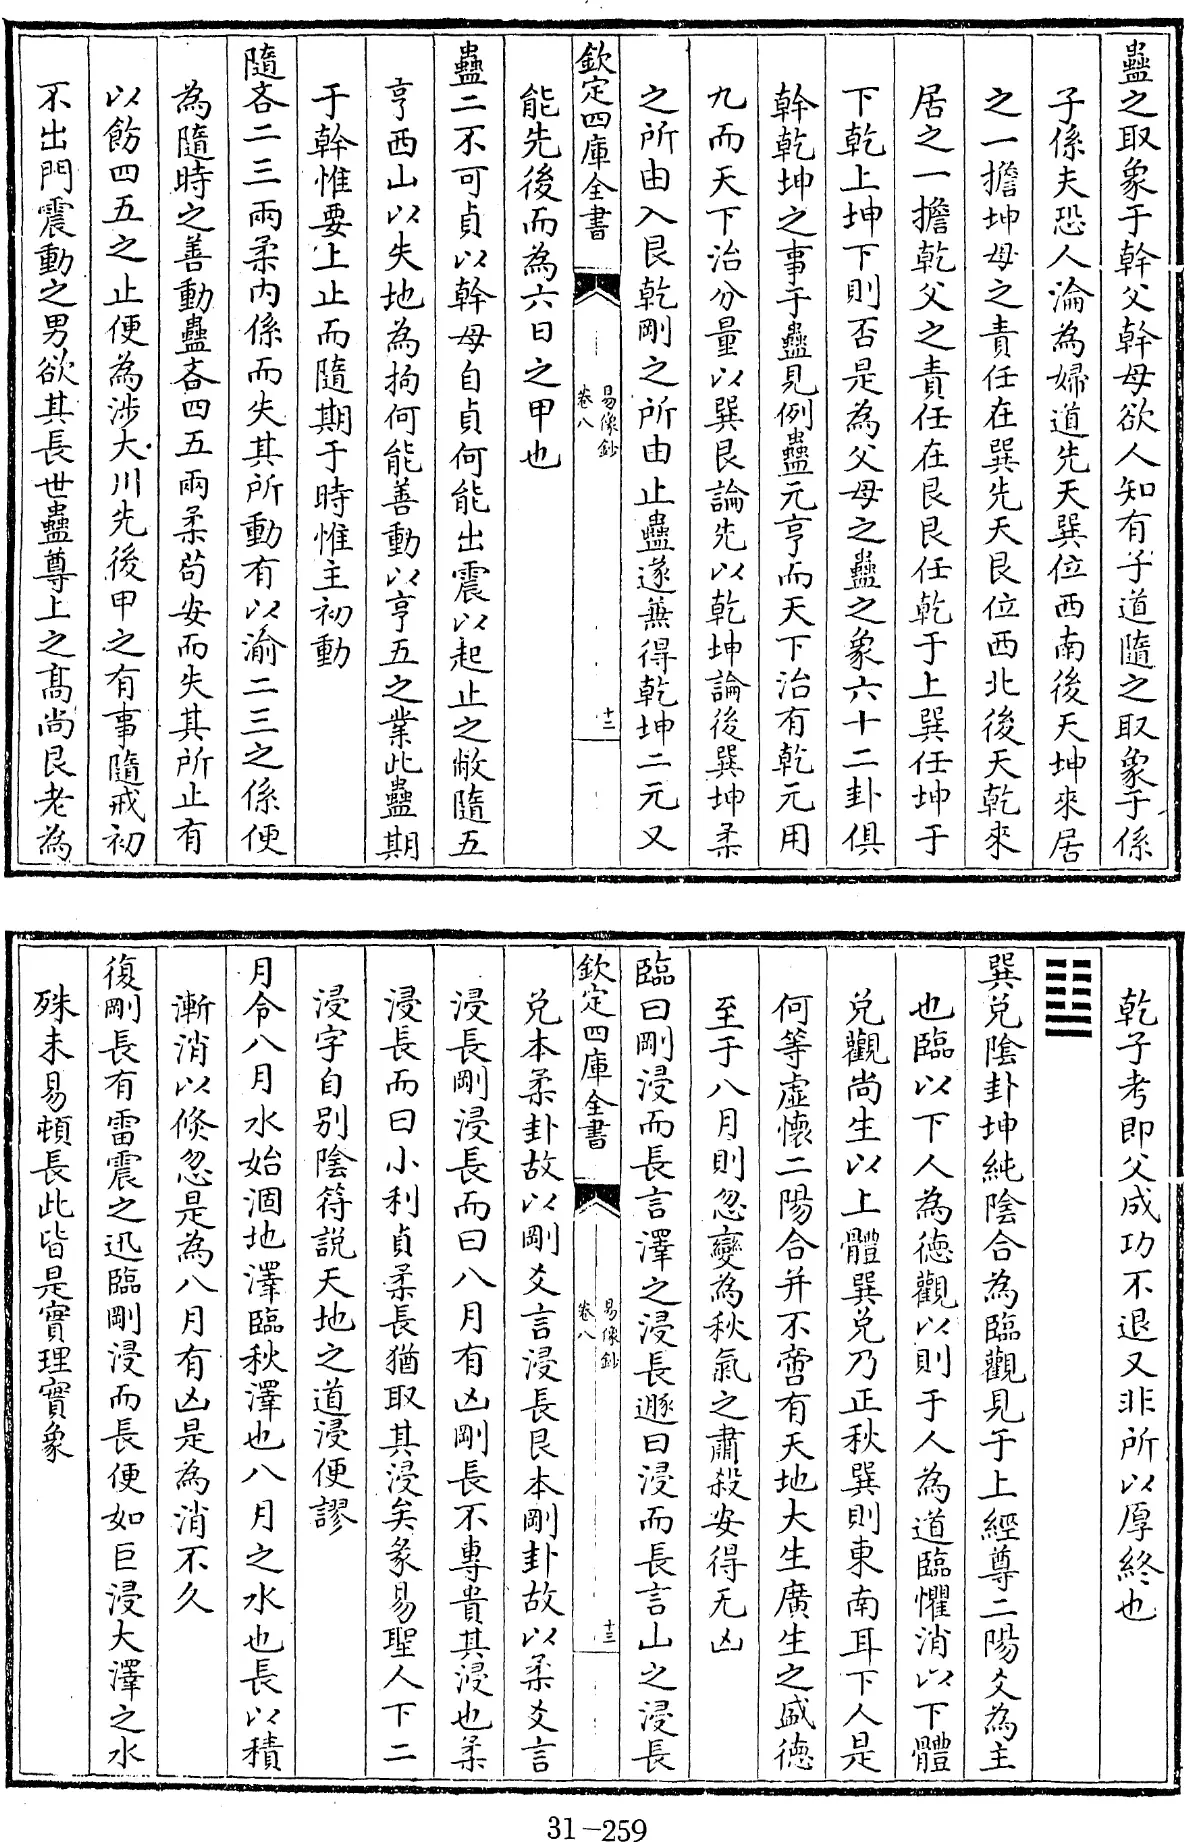 蠱之取象于幹父幹母欲人知有子道隨之取象于係
子係夫恐人淪為婦道先天巽位西南後天坤來居
之一擔坤母之責任在巽先天艮位西北後天乾來
居之一擔乾父之責任在艮艮任乾于上巽任坤于
下乾上坤下則否是為父母之蠱之象六十二卦俱
幹乾坤之事于蠱見例蠱元亨而天下治有乾元用
九而天下治分量以巽艮論先以乾坤論後巽坤柔
之所由入艮乾剛之所由止蠱遂無得乾坤二元又
欽定四庫全書
易像鈔
卷八
十二
能先後而為六日之甲也
蠱二不可貞以幹母自貞何能出震以起止之敝隨五
亨西山以失地為拘何能善動以亨五之業此蠱期
于幹惟要上止而隨期于時惟主初動
隨吝二三兩柔内係而失其所動有以渝二三之係便
為隨時之善動蠱吝四五兩柔茍安而失其所止有
以飭四五之止便為涉大川先後甲之有事隨戒初
不出門震動之男欲其長世蠱尊上之髙尚艮老為
乾子考即父成功不退又非所以厚終也
䷒
巽兑隂卦坤純隂合為臨觀見于上經尊二陽爻為主
也臨以下人為徳觀以則于人為道臨懼消以下體
兑觀尚生以上體巽兑乃正秋巽則東南耳下人是
何等虛懷二陽合并不啻有天地大生廣生之盛徳
至于八月則忽變為秋氣之肅殺安得无凶
臨曰剛浸而長言澤之浸長遯曰浸而長言山之浸長
欽定四庫全書
易像鈔
卷八
十三
兑本柔卦故以剛爻言浸長艮本剛卦故以柔爻言
浸長剛浸長而曰八月有凶剛長不專貴其浸也柔
浸長而曰小利貞柔長猶取其浸矣彖易聖人下二
浸字自别隂符説天地之道浸便謬
月令八月水始涸地澤臨秋澤也八月之水也長以積
漸消以倐忽是為八月有凶是為消不久
復剛長有雷震之迅臨剛浸而長便如巨浸大澤之水
殊未易頓長此皆是實理實象
31-259